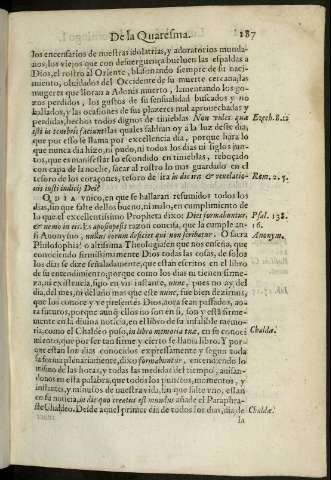 De la Quaresma. 187
los encensarios de nuestras idolatrias, y adoratorios munda-
nos, los viejos que con desuerguença bueluen las espaldas a
Dios, el rostro al Oriente, blasonando siempre de su naci-
miento, oluidados del Occidente de su muerte cercana, las
mugeres que lloran a Adonis muerto, lamentando los go-
zos perdidos, los gustos de su sensualidad buscados y no
hallados, y las ocasiones de sus plazeres mal aprouechadas y
perdidas, hechos todos dignos de tinieblas Non vides quæ Ezech. 8.12
isti in tenebris faciunt: las quales saldran oy a la luz deste dia,
que por esso le llama por excellencia dia, porque hara lo
que nunca dia hizo, ni pudo, ni todos los dias ni siglos jun-
tos, que es manifestar lo escondido en tinieblas, reboçado
con capa de noche, sacar al rostro lo mas guardado en el
tesoro de los coraçones, tesoro de ira in die iræ & reuelatio- Rom. 2.5.
nis iusti iudicij Dei?
O dia vnico, en que se hallaran resumidos todos los
dias, sin que falte dellos bueno, ni malo, en cumplimiento de
lo que el excellentissimo Propheta dixo: Dies formabuntur, Psal. 138.
& nemo in eis. Ex aposiopesis razon concisa, que la cumple an- 16.
si Anonymo, nullus eorum deficiet qui non scribetur. O sacra Anonym.
Philosophia! o altissima Theologia! en que nos enseña, que
conociendo firmissimamente Dios todas las cosas, de solos
los dias se dize señaladamente, que estan escritos en el libro
de su entendimiento; porque como los dias ni tienen firme-
za, ni existencia, sigo en vn instante, nunc, pues no ay del
dia, del mes, ni del año mas que este nunc, fue bien dezirnos,
que los conoce y ve presentes Dios, aora sean passados, ao-
ra futuros, porque aunque ellos no son en si, son y està firme-
mente en la diuina noticia, en el libro de su infalible memo-
ria, como el Chaldeo puso, in libro memoriæ tuæ, en su conoci- Chaldæ.
miento, que por ser tan firme y cierto se llama libro. Y por-
que estan los dias conocidos expressamente y segun toda
la forma plenariamente, dixo formabuntur, entendiendo lo
mismo de las horas, y todas las medidas del tiempo, auisan-
donos en esta palabra, que todos los punctos, momentos, y
instantes, y minutos de nuestra vida, sin que falte vno, estan
en su noticia, in die quo creatus est mundus añade el Paraphra-
ste Chaldeo. Desde aquel primer dia de todos los dias, dia de Chaldæ.
la